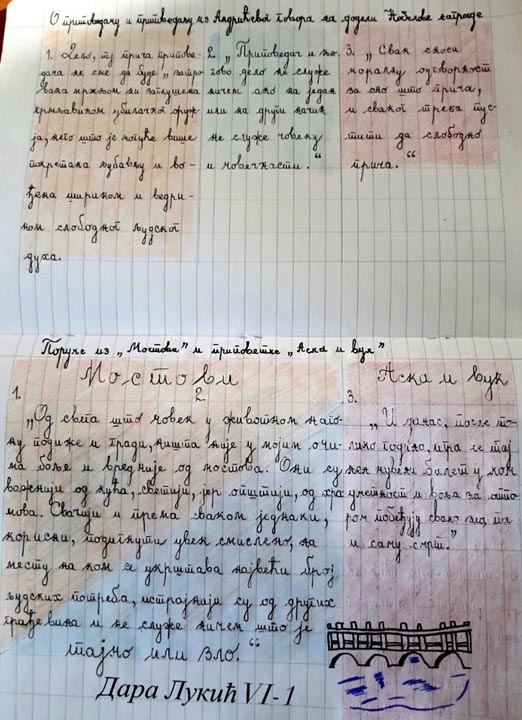 О приповедачу и приповедању из Андрићевог говора на додели Нобелове награде
1.
тј прича припове-
дача не сме да буде „затро
вана мржњом ни заглушена
грмљавином убилачког оруж-
ја, него што је могуће више
покретана љубављу и во-
ђена ширином и ведри-
ном слободног људског
духа.
2. „Приповедач и ње-
гово дело не служе
ничем ако на један
или на други начин
не служе човеку
и човечности.“
3. „Свак сноси
моралну одговорност
за оно што прича,
и сваког треба пус-
тити да слободно
прича.“
Поруке из „Мостова” и приповетке „Аска и вук”
Мостови
1. 2.
„Од свега што човек у животном наго-
ну подиже и гради, ништа није у мојим очи-
ма боље и вредније од мостова. Они су
важнији од кућа, светији, јер општији, од хра
мова. Свачији и према сваком једнаки,
корисни, подигнути увек смислено, на
месту на ком се укрштава највећи број
људских потреба, истрајнији су од других
грађевина и не служе ничем што је
тајно или зло.“
Аска и вук
3.
„И данас, после то-
лико година, игра се тај
њен чувени балет у ком
уметност и воља за отпо
ром побеђују свако зло, па
и саму смрт.”
Дара Лукић VI-1